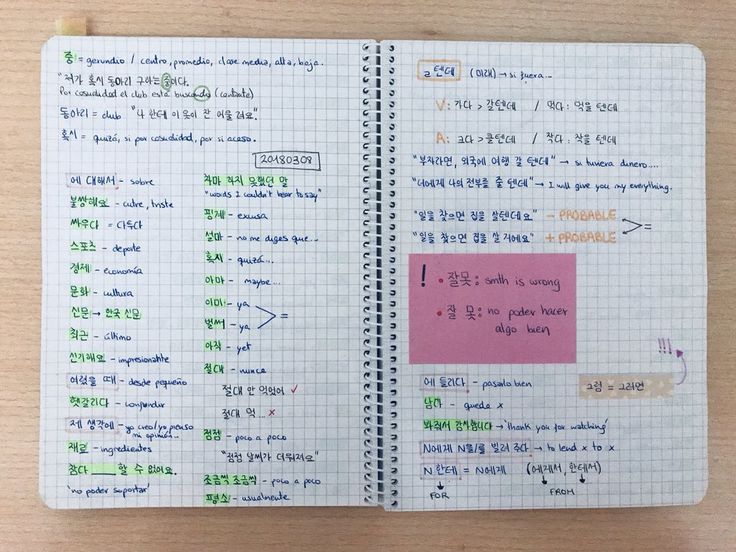 중 = gerundio / centro, promedio, clase media, alta, baja.
"저가 혹시 동아리 구하는 중이다.
Por casualidad el club está buscando (contrate)
동아리 = club "나 한테 이 옷이 잘 어울려요".
혹시 = quizá, si por casualidad, por si acaso.
20180308
에 대해서 - sobre
불쌍해요 - cutre, triste
싸우다 = 다투다
스포츠 - deporte
경제 - economía
문화 - cultura
신문 → 한국 신문
최근 - último
신기해요 - impresionante
어렸을 때 - desde pequeño
헷갈리다 - confundir
제 생각에 - yo creo/yo pienso
mi opinión...
재료 - ingredientes
참다 ____ 할 수 없어요.
'no poder soportar'
차마 하지 못했던 말
"words I couldn't bear to say"
핑계 - excusa
설마 - no me digas que...
혹시 - quizá...
아마 - maybe...
이미 - ya
벌써 - ya
=
아직 - yet
절대 - nunca
절대 안 먹었어 ✓
절대 먹... ✗
점점 - poco a poco
"점점 날씨가 더워져요"
조금씩 조금씩 - poco a poco
평소 - usualmente
ㄹ 텐데 (미래) → si fuera...
V: 가다 > 갈텐데 / 먹다 : 먹을 텐데
A: 크다 > 클텐데 / 작다 : 작을 텐데
"부자라면, 외국에 여행 갈 텐데" → si tuviera dinero....
"너에게 나의 전부를 줄 텐데" → I will give you my everything.
"일을 찾으면 집을 살텐데요" - PROBABLE
"일을 찾으면 집을 살 거에요" + PROBABLE
=
! • 잘못 : smth is wrong
• 잘 못 : no poder hacer
algo bien
!!!
에 들리다 - pasarlo bien
그럼 = 그러면
남다 - queda x
봐줘서 감사합니다 → 'thank you for watching'
N에게 N을/를 빌려 주다 → to lend x to x
N 한테 = N에게 (에게서 한테서)
FOR FROM